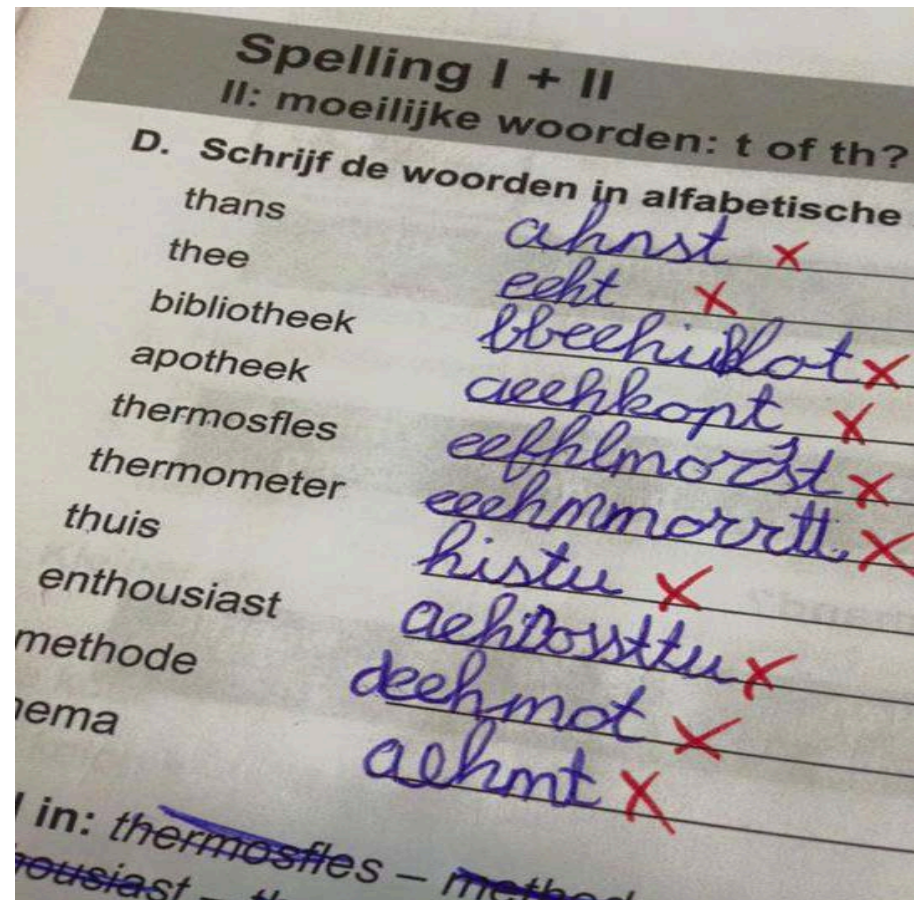 Spelling I + II
II: moeilijke woorden: t of th?
D. Schrijf de woorden in alfabetische
thans ahnst x
thee eeht x
bibliotheek bbeehiiklot x
apotheek aeehkopt x
thermosfles eefhlmorsst x
thermometer eeehmmorrtt x
thuis histu x
enthousiast aehiossttu x
methode deehmot x
hema aehmt x
in: thermosfles – method
housiast – th